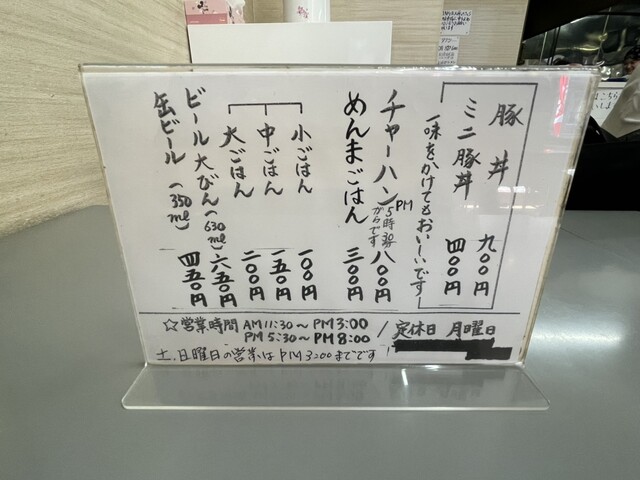 豚丼 九〇〇円
ミニ豚丼 四〇〇円
一味をかけてもおいしいです
チャーハン PM5時30からです 八〇〇円
めんまごはん 三〇〇円
小ごはん 一〇〇円
中ごはん 一五〇円
大ごはん 二〇〇円
ビール大びん(630ml) 六五〇円
缶ビール(350ml) 四五〇円
☆営業時間 AM11:30～PM3:00 / 定休日 月曜日
PM5:30～PM8:00
土.日曜日の営業はPM3:00までです